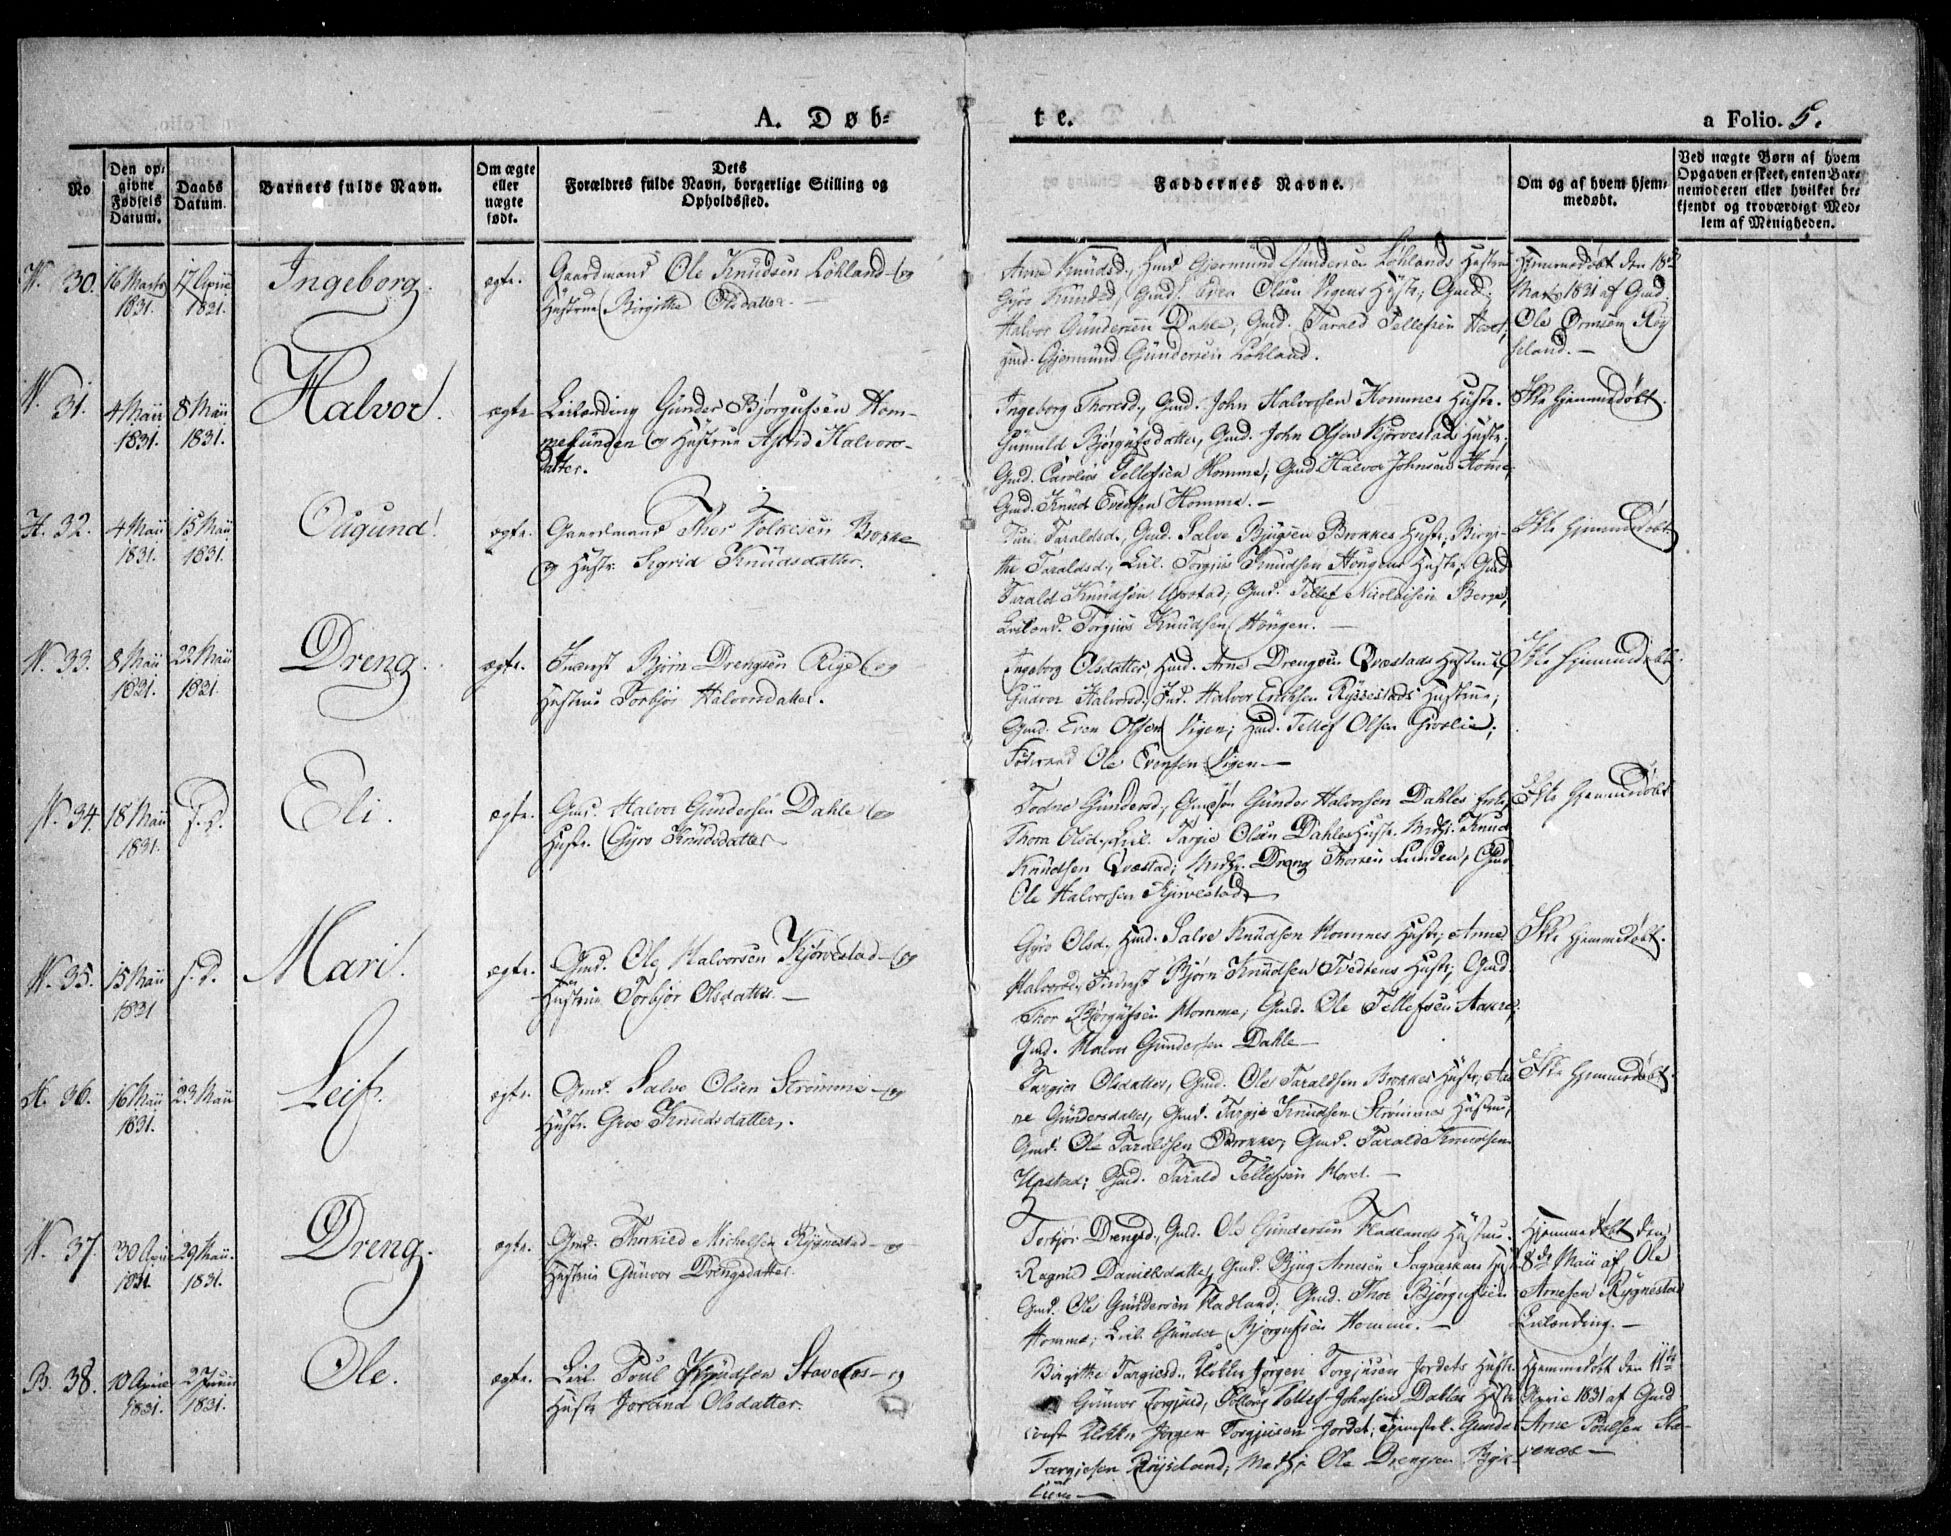 A. Døb-
te.
a Folio. 5.
No
Den op-
givne
Fødsels
Datum.
Daabs
Datum.
Barnets fulde Navn.
Om ægte
eller
uægte
født.
Dets
Forældres fulde Navn, borgerlige Stilling og
Opholdssted.
Faddernes Navne.
Om og af hvem hjem-
medøbt.
Ved uægte Børn af hvem
Opgaven er skeet, enten Bar-
nemoderen eller hvilket be-
kjendt og troværdigt Med-
lem af Menigheden.
N. 30.
16 Marts
1831.
17 April
1831.
Ingeborg.
ægte.
Gaardmand Ole Knudsen Løhland og
Hustrue Birgithe Olsdatter.
Anne Knudsd., Gmd. Gjermund Gundersen Løhlands Hustrue
Gyro Knudsd., Gmd. Even Olsen Vigens Hustr; Gmd.
Halvor Gundersen Dahle, Gmd. Tarald Tellefsen
Gmd. Gjermund Gundersen Løhland.
Hjemmedøbt den 18de
Marts 1831 af Gmd.
Ole Ormsen Røy
seland.
N. 31.
4 Maii
1831.
8 Maii
1831.
Halvor.
ægte
Leilænding Gunder Bjørgufsen Hom-
melunden og Hustrue Asend Halvors-
datter.
Ingeborg Thoresd., Gmd. John Halvorsen Hommes Hustr.
Gunuld Bjørgufsdatter, Gmd. John Olsen Kjørvestads Hustr.
Gmd. Carolius Tellefsen Homme, Gmd Halvor Johnsen Homme,
Gmd. Knud Evensen Homme.
Ikke Hjemmedøbt.
H. 32.
4 Maii
1831.
15 Maii
1831.
Ougund.
ægte.
Gaardmand Thor Folkesen Brokke
og Hustr. Sigrid Knudsdatter.
Turi Taraldsd., Gmd. Salve Bjugsen Brokkes Hustr, Birgi-
the Taraldsd., Leil. Torgius Knudsen Hougens Hustr; Gmd
Tarald Knudsen Upstad; Gmd. Tellef Nicolaisen Berge,
Leilænd. Torgius Knudsen Høugen.
Ikke Hjemmedøbt
N. 33.
8 Maii
1831.
22 Maii
1831.
Dreng.
ægte.
Inderst Bjørn Drengsen Rige og
Hustrue Torbjør Halvorsdatter.
Ingeborg Olsdatter, Gmd. Arne Drengsen Qvestads Hustrue,
Gunvor Halvorsd., Ind. Halvor Erichsen Rysestads Hustrue;
Gmd. Even Olsen Vigen; Gmd. Tellef Olsen Groslie;
Føderaad Ole Evensen Vigen
Ikke Hjemmedøbt.
N. 34.
18 Maii
1831.
s. D.
Eli.
ægte.
Gmd. Halvor Gundersen Dahle og
Hustr. Gyro Knudsdatter
Todne Gundersd., Gmdsøn Gunder Halvorsen Dahles
Thora Olsd., Leil. Targie Olsen Dahles Hustr. Knud
Knudsen Qvestad; Dreng Thorsen Lunden, Gmd
Ole Halvorsen Kjørvestad
Ikke Hjemmedøbt
N. 35.
15 Maii
1831
s. D.
Mari.
ægte.
Gmd. Ole Halvorsen Kjørvestad og
Hustrue Torbjør Olsdatter.
Gyro Olsd., Gmd. Salve Knudsen Hommes Hustr; Anne
Halvorsd., Inderst Bjørn Knudsen Tvedtens Hustr; Gmd.
Thor Bjørgufsen Homme, Gmd. Ole Tellefsen Aakre,
Gmd. Halvor Gundersen Dahle
Ikke Hjemmedøbt.
H. 36.
16 Maii
1831.
23 Maii
Leif.
ægte.
Gmd. Salve Olsen Strømme og
Hustr. Groe Knudsdatter.
Targier Olsdatter, Gmd. Ole Taraldsen Brokkes Hustr; An-
ne Gundersdatter, Gmd. Targie Knudsen Strømmes Hustrue;
Gmd. Ole Taraldsen Brokke; Gmd. Tarald Knudsen
Upstad; Gmd. Tarald Tellefsen Hovet.
Ikke Hjemmedøbt.
N. 37.
30 April
1831.
29 Maii
1831.
Dreng.
ægte.
Gmd. Thorkild Michelsen Rygnestad og
Hustrue Gunvor Drengsdatter.
Torbjør Drengsd., Gmd. Ole Gundersen Fladlands Hustrue.
Ragnild Danielsdatter, Gmd. Bjug Arnesen Hustr
Gmd. Ole Gundersen Fladland; Gmd. Thor Bjørgufsen
Homme; Leil. Gunder Bjørgufsen Homme.
Hjemmedøbt den
8de Maii af Ole
Arnesen Rygnestad
Leilænding.
B. 38.
10 April
1831.
2 Junii
1831.
Ole.
ægte.
Leil. Poul Knudsen Stavenes og
Hustr Jorand Olsdatter.
Birgithe Targiesd., Jørgen Torgjusen Jordets Hustr.
Gunvor Torgjusd, Tellef Johnsen Dahles Hustr
Jørgen Torgjusen Jordet; Gunder
Targiesen Røyseland; Ole Drengsen Byk-
Hjemmedøbt den 11te
April 1831 af Gmd
Arne Poulsen Sta-
venæs